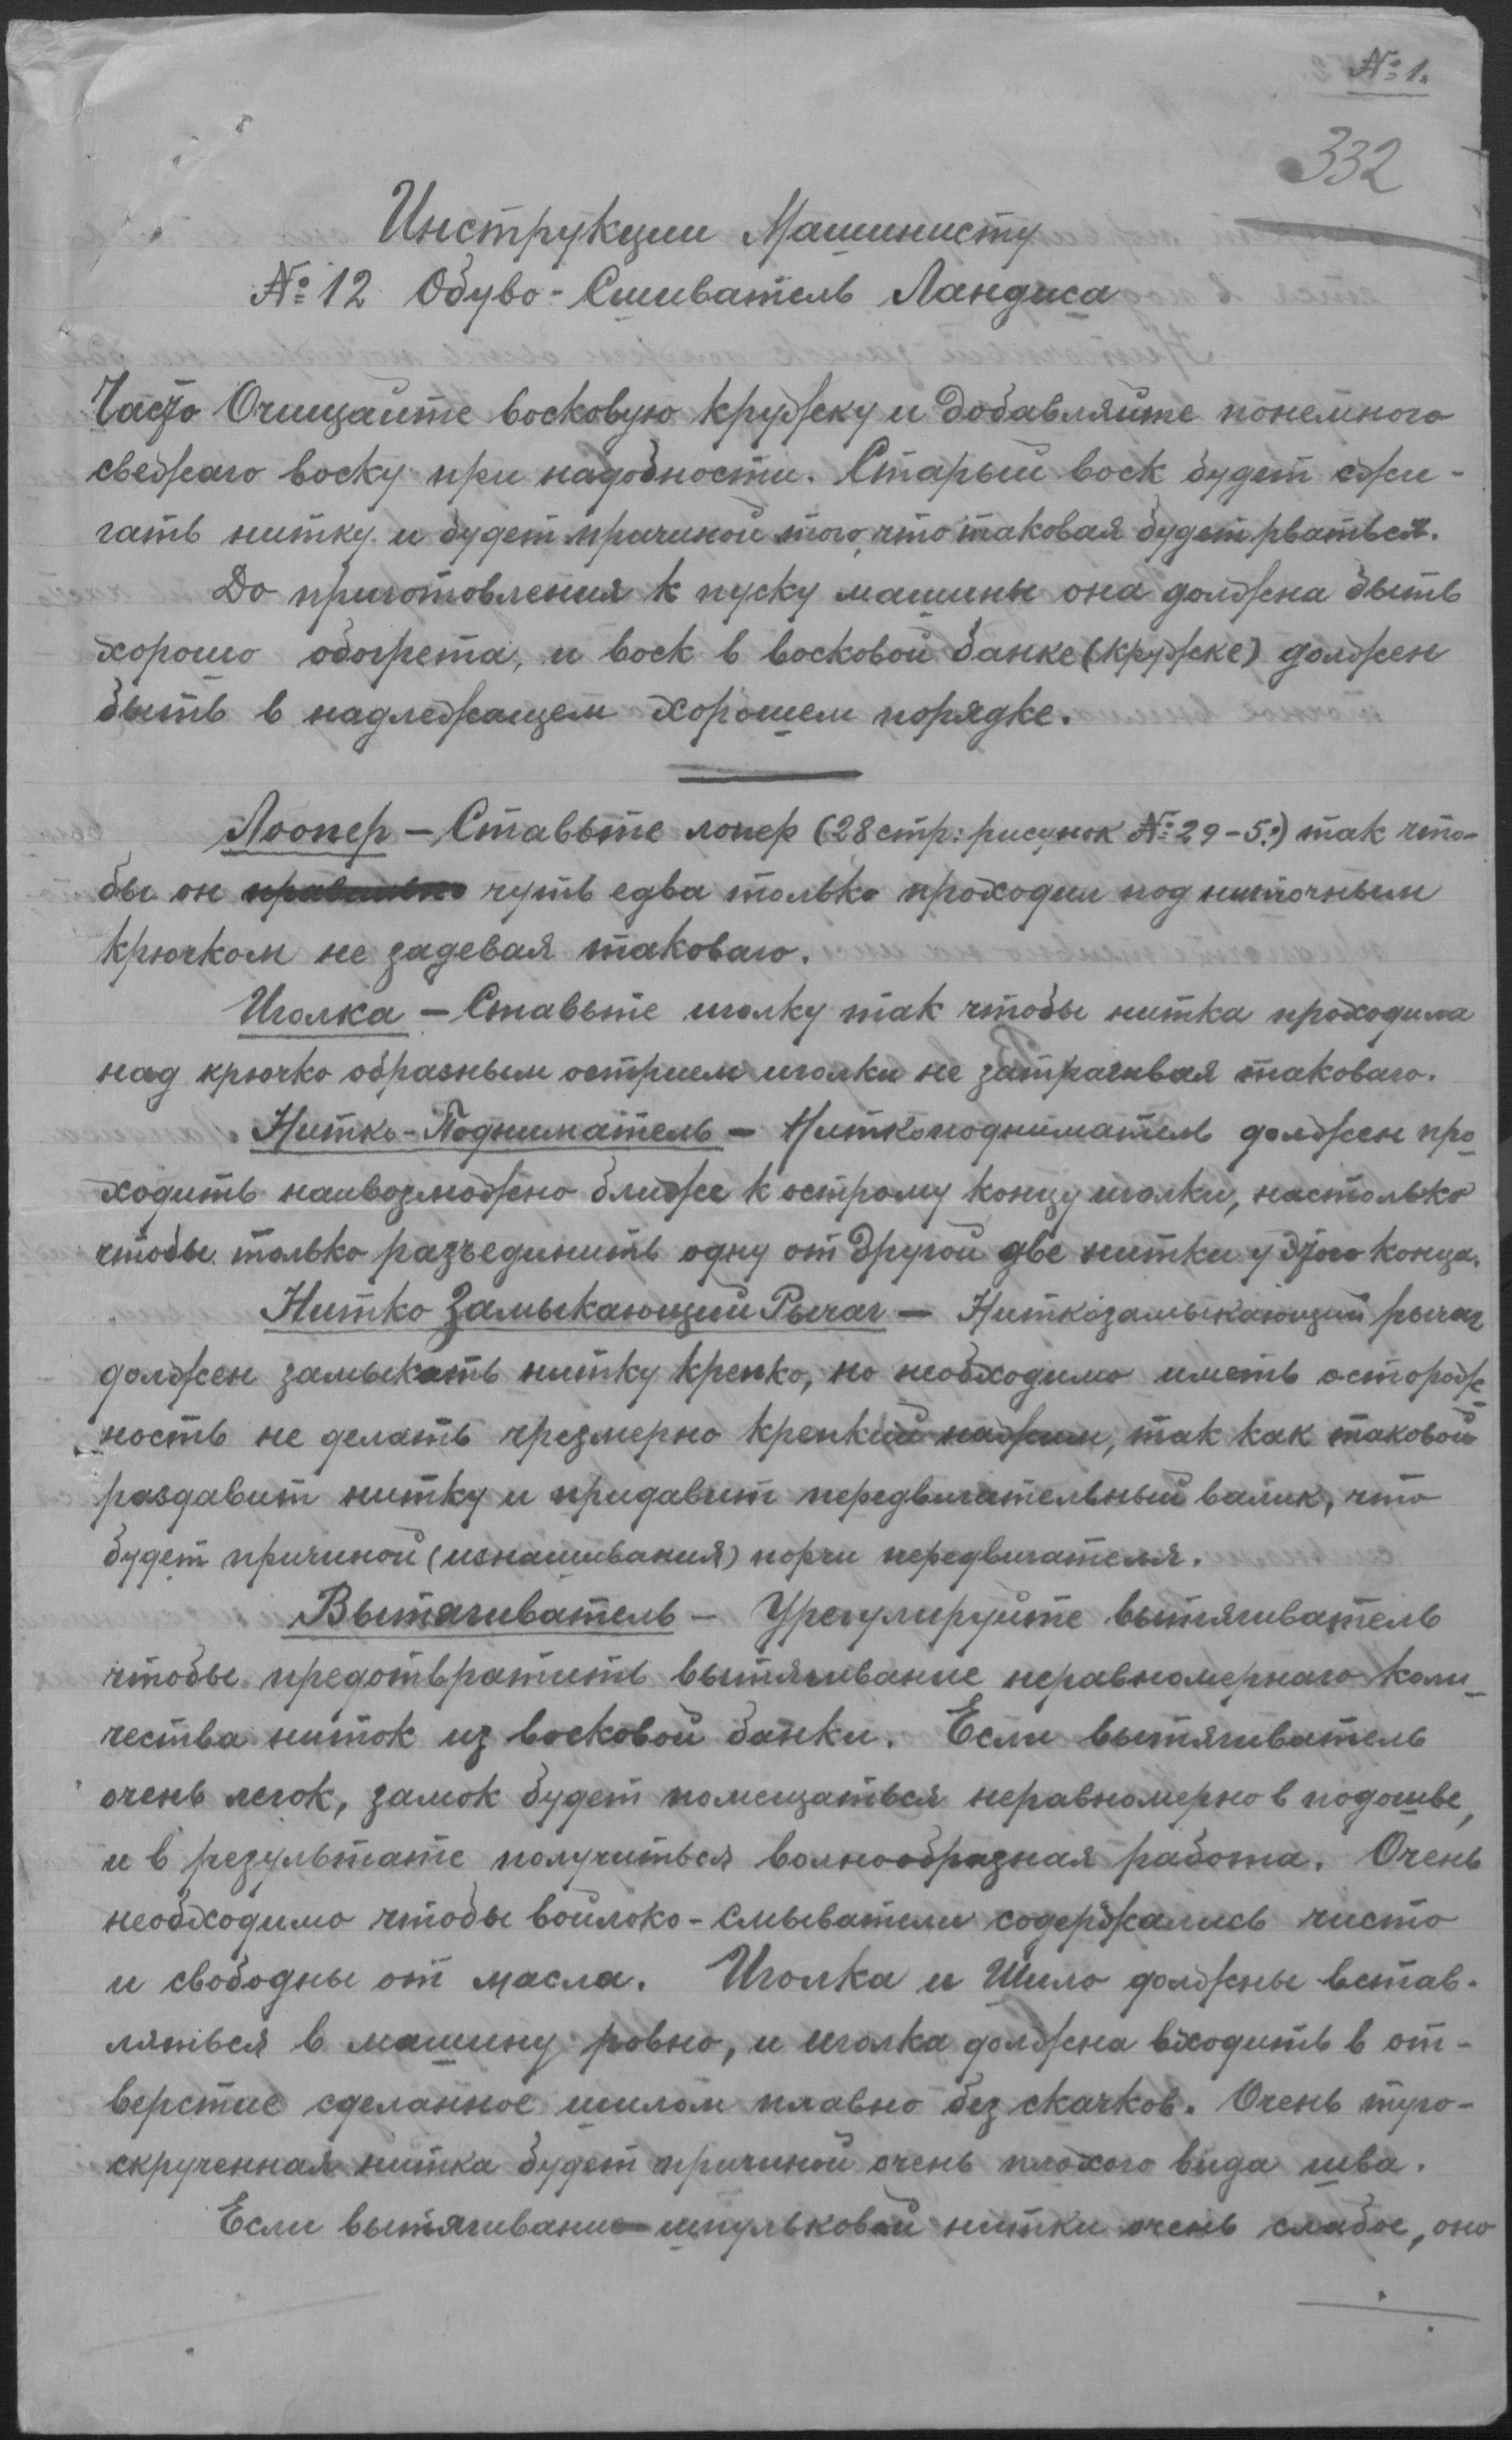 № 1.
332
Инструкции Машинисту
№ 12 Обуво-Сшиватель Ландиса
Часто Очищайте восковую кружку и добавляйте понемного
свежаго воску при надобности. Старый воск будет сжи-
гать нитку и будет причиной того, что таковая будет рваться.
До приготовления к пуску машины она должна быть
хорошо обогрета, и воск в восковой банке (кружке) должен
быть в надлежащем хорошем порядке.
Лоопер — Ставьте лопер (28 стр: рисунок № 29-5:) так что-
бы он правильно чуть едва только проходил под ниточным
крючком не задевая таковаго.
Иголка — Ставьте иголку так чтобы нитка проходила
над крючко образным острием иголки не затрагивая таковаго.
Нитко-Подниматель —Ниткоподниматель должен про
ходить наивозможно ближе к острому концу иголки, настолько
чтобы только разъединить одну от другой две нитки у этого конца.
Нитко Замыкающий Рычаг — Ниткозамыкающий рычаг
должен замыкать нитку крепко, но необходимо иметь осторож
ность не делать чрезмерно крепкий нажим, так как таковой
раздавит нитку и придавит передвигательный валик, что
будет причиной (изнашивания) порчи передвигателя.
Вытягиватель — Урегулируйте вытягиватель
чтобы предотвратить вытягивание неравномернаго коли-
чества ниток из восковой банки. Если вытягиватель
очень легок, замок будет помещаться неравномерно в подошве,
и в результате получиться волнообразная работа. Очень
необходимо чтобы войлоко-смыватели содержались чисто
и свободны от масла. Иголка и Шило должны встав-
ляться в машину ровно, и иголка должна входить в от-
верстие сделанное шилом плавно без скачков. Очень туго-
скрученная нитка будет причиной очень плохого вида шва.
Если вытягивание шпульковой нитки очень слабое, оно